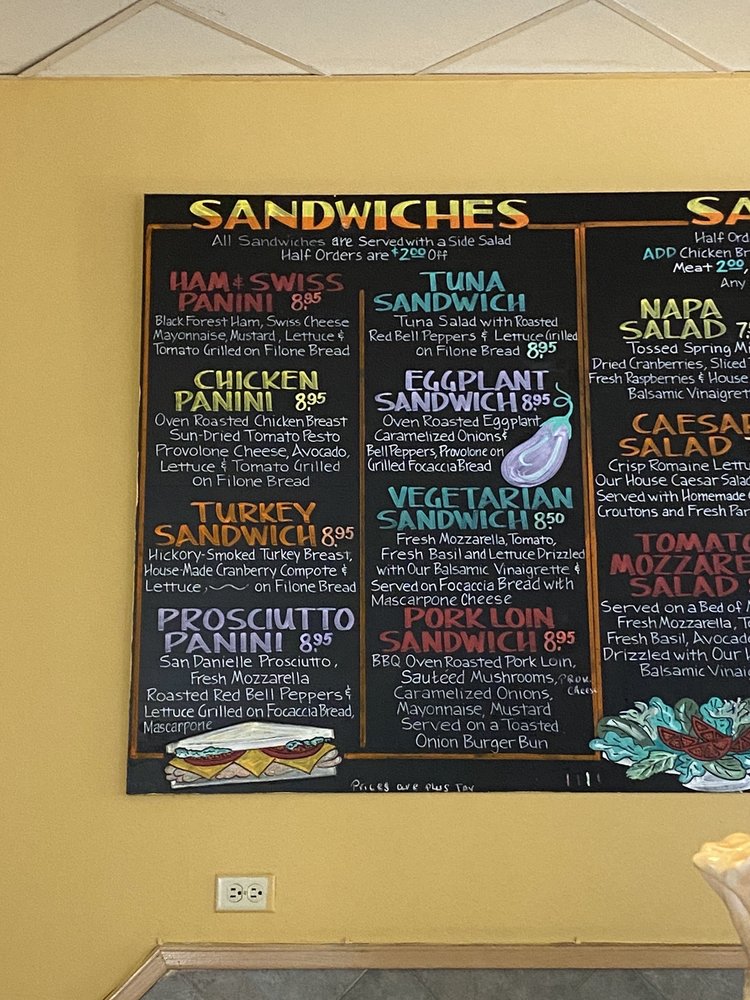 SANDWICHES
All Sandwiches are Served with a Side Salad
Half Orders are $2.00 Off
HAM & SWISS
PANINI 8.95
Black Forest Ham, Swiss Cheese
Mayonnaise, Mustard, Lettuce &
Tomato Grilled on Filone Bread
CHICKEN
PANINI 8.95
Oven Roasted Chicken Breast
Sun-Dried Tomato Pesto
Provolone Cheese, Avocado,
Lettuce & Tomato Grilled
on Filone Bread
TURKEY
SANDWICH 8.95
Hickory-Smoked Turkey Breast,
House-Made Cranberry Compote &
Lettuce, on Filone Bread
PROSCIUTTO
PANINI 8.95
San Danielle Prosciutto,
Fresh Mozzarella
Roasted Red Bell Peppers &
Lettuce Grilled on Focaccia Bread,
Mascarpone
TUNA
SANDWICH
Tuna Salad with Roasted
Red Bell Peppers & Lettuce Grilled
on Filone Bread 8.95
EGGPLANT
SANDWICH 8.95
Oven Roasted Eggplant
Caramelized Onions &
Bell Peppers, Provolone on
Grilled Focaccia Bread
VEGETARIAN
SANDWICH 8.50
Fresh Mozzarella, Tomato,
Fresh Basil and Lettuce Drizzled
with Our Balsamic Vinaigrette &
Served on Focaccia Bread with
Mascarpone Cheese
PORK LOIN
SANDWICH 8.95
BBQ Oven Roasted Pork Loin,
Sauteed Mushrooms, Prov. Cheese
Caramelized Onions,
Mayonnaise, Mustard
Served on a Toasted
Onion Burger Bun
Prices are plus Tax
SA
Half Ord
ADD Chicken Br
Meat 2.00,
Any
NAPA
SALAD 7.
Tossed Spring Mi
Dried Cranberries, Sliced
Fresh Raspberries & House
Balsamic Vinaigret
CAESAR
SALAD
Crisp Romaine Lettu
Our House Caesar Salad
Served with Homemade
Croutons and Fresh Par
TOMATO
MOZZARE
SALAD
Served on a Bed of
Fresh Mozzarella, To
Fresh Basil, Avocado
Drizzled with Our H
Balsamic Vinaig